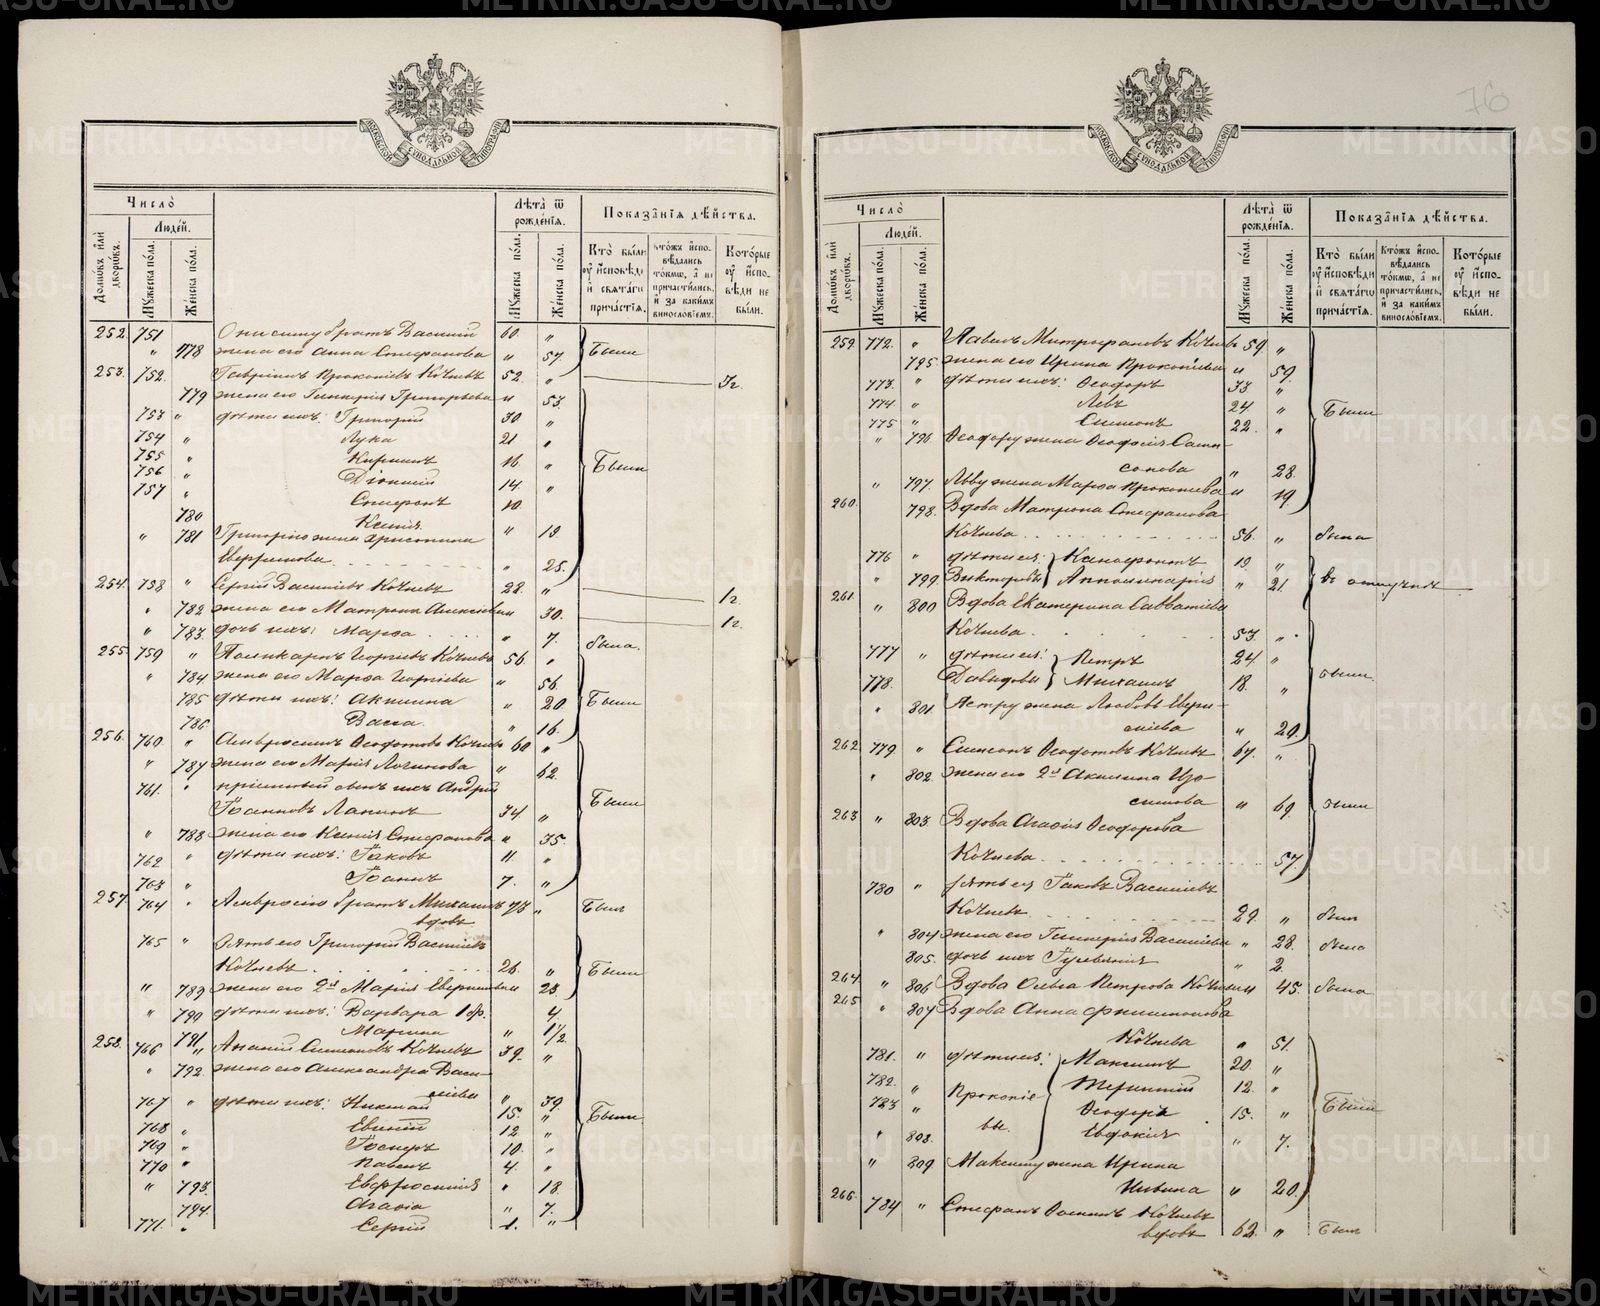 76
МОСКОВСКОЙ СѴНОДАЛЬНОЙ ТИПОГРАФІИ
Число̀
Людей.
Домѡ́въ и҆лѝ дворѡ́въ.
Мꙋжеска по́ла.
Же́нска по́ла.
Лѣ́та ѿ рожде́нїѧ.
Мꙋжеска по́ла.
Же́нска по́ла.
Показа̑нїѧ дѣ́йства.
Кто̀ бы́ли ᲂу҆ и҆сповѣ́ди и҆ свѧта́гѡ прича́стїѧ.
Кто́жъ и҆сповѣ́дались то́кмѡ, а҆ не причасти́лись, и҆ за каки́мъ виносло́вїемъ.
Кото́рые ᲂу҆ и҆сповѣ́ди не бы́ли.
252. 751 Онисиму братъ Василий 60. "
" 778 жена его Анна Стефанова " 57. Были
253. 752. Гавриилъ Прокопіевъ Кочневъ 52. " 3г.
779 жена его Гликерія Григорьева " 53.
753 " дѣти ихъ: Григорій 30 "
754 " Лука 21 "
755 " Кириллъ 16 " Были
756 " Діонисій 14. "
757 " Стефанъ 10
780 Ксенія " 19.
" 781 Григорію жена Христина
Евфимова " 25.
254. 758 " Сергій Василіевъ Кочневъ 28. " 1г.
" 782 жена его Матрона Алексіева " 30. 1г.
" 783. дочь ихъ: Марѳа " 7. была.
255. 759 " Поликарпъ Георгіевъ Кочневъ 56 "
" 784 жена его Марѳа Георгіева " 56.
785 дѣти ихъ: Акилина " 20 Были
786 Васса. " 16.
256. 760 " Амвросій Ѳеодотовъ Кочневъ 60 "
" 787 жена его Марія Логинова " 62.
761. " пріемный сынъ ихъ Андрей
Іоанновъ Лапинъ 34 " Были
" 788 жена его Ксенія Стефанова " 35.
762 " дѣти ихъ: Іаковъ 11. "
763 " Іоаннъ 7. "
257. 764 " Амвросію братъ Михаилъ 73 " Былъ
вдовъ
765 " Зять его Григорій Василіевъ
Кочневъ 26. " Были
" 789 жена его 2я Марія Евгеніева " 23
" 790 дѣти ихъ: Варвара 4.
791. Марина " 1½
258. 766 " Ананій Симеоновъ Кочневъ 39. "
" 792. жена его Александра Васи-
ліева " 39.
767 " дѣти ихъ: Николай 15. " Были
768 " Евгеній 12. "
769 " Іосифъ 10. "
770 " Павелъ 4. "
" 793. Евфросинія " 18.
794. Агаѳія " 7.
771. " Сергій 1. "
Число̀
Людей.
Домѡ́въ и҆лѝ дворѡ́въ.
Мꙋжеска по́ла.
Же́нска по́ла.
Лѣ́та ѿ рожде́нїѧ.
Мꙋжеска по́ла.
Же́нска по́ла.
Показа̑нїѧ дѣ́йства.
Кто̀ бы́ли ᲂу҆ и҆сповѣ́ди и҆ свѧта́гѡ прича́стїѧ.
Кто́жъ и҆сповѣ́дались то́кмѡ, а҆ не причасти́лись, и҆ за каки́мъ виносло́вїемъ.
Кото́рые ᲂу҆ и҆сповѣ́ди не бы́ли.
259. 772. " Павелъ Митрофановъ Кочневъ 59 "
795. жена его Ирина Прокопіева " 59.
773. " дѣти ихъ: Ѳеодоръ 33 "
774 " Левъ 24 " Были
775 " Симеонъ 22. "
" 796 Ѳеодору жена Ѳеодосія Самп-
сонова " 28.
" 797. Льву жена Марѳа Прокопіева " 19.
260. 798. Вдова Матрона Стефанова
Кочнева 56. " была
776 " дѣти ея: Ксенофонтъ 19 "
" 799 Викторовы Апполинарія " 21. въ отлучкѣ
261. " 800 Вдова Екатерина Савватіева
Кочнева 53. "
777 " дѣти ея: Петръ 24 "
778. Давидовы Михаилъ 18. " были
" 801. Петру жена Любовь Евги-
сіева " 20.
262. 779 " Симеонъ Ѳеодотовъ Кочневъ 67. "
" 802. жена его 2я Акилина Изо-
симова " 69. были
263 " 803. Вдова Агаѳія Ѳеодорова
Кочнева 57.
780 " зять ея Іаковъ Василіевъ
Кочневъ 29. " былъ
" 804 жена его Гликерія Василіева " 28. была
805. дочь ихъ Гулевянія " 2.
264 " 806 Вдова Ольга Петрова Кочнева " 45. была
265 " 807 Вдова Анна Филимонова
Кочнева " 51.
781. " дѣти ея: Максимъ 20. "
782. " Прокопіе- Терентій 12. "
783 " вы. Ѳеодоръ 15. " Были
" 808. Евдокія " 7.
" 809 Максиму жена Ирина
Нивина " 20.
266. 784 " Стефанъ Ѳоминъ Кочневъ
вдовъ 62. " Былъ
METRIKI.GASO-URAL.RU